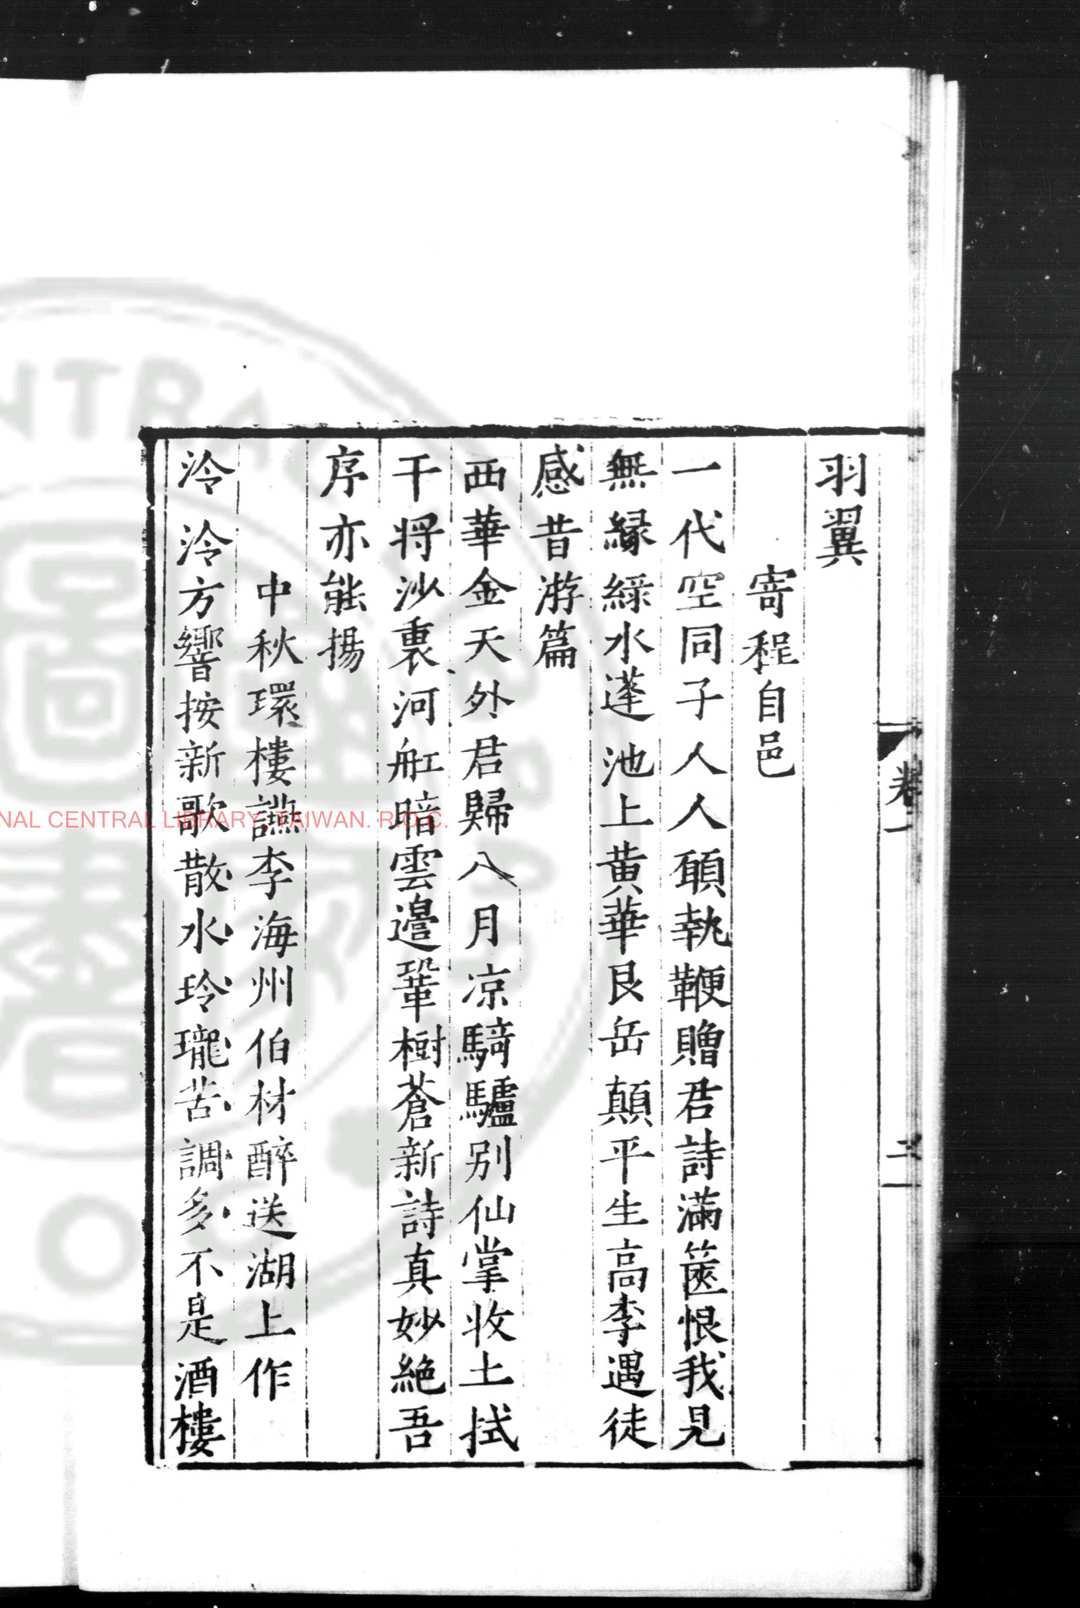 羽翼
寄程自邑
一代空同子人人願執鞭贈君詩滿篋恨我見
無緣綠水蓬池上黃華艮岳顛平生高李遇徒
感昔游篇
西華金天外君歸八月凉騎驢别仙掌收土拭
干將沙裏河舡暗雲邉鞏樹蒼新詩真妙絶吾
序亦能揚
中秋環樓讌李海州伯材醉送湖上作
泠泠方響按新歌散水玲瓏苦調多不是酒樓
卷一
二
NAL CENTRAL LIBRARY, TAIWAN. R.O.C.